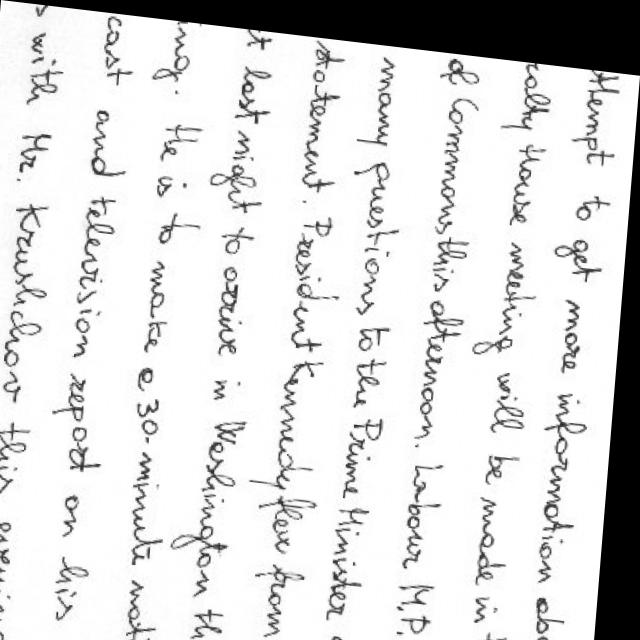 to get more information
House meeting will be made in
of Commons this afternoon. Labour M.P.
many questions to the Prime Minister
statement. President Kennedy flew from
last night to arrive in Washington
He is to make a 30-minute
cast and television report on his
with Mr. Krushchov this